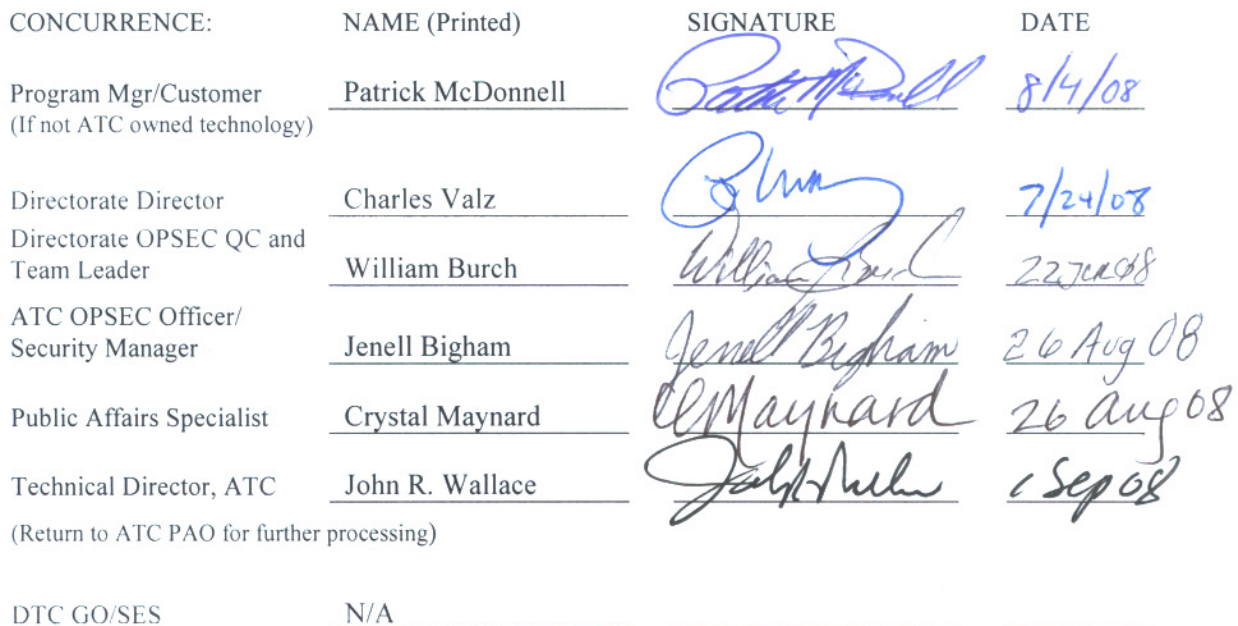 CONCURRENCE: NAME (Printed) SIGNATURE DATE
Program Mgr/Customer Patrick McDonnell 8/4/08
(If not ATC owned technology)
Directorate Director Charles Valz 7/24/08
Directorate OPSEC QC and
Team Leader William Burch William Burch
ATC OPSEC Officer/
Security Manager Jenell Bigham Jenell Bigham 26 Aug 08
Public Affairs Specialist Crystal Maynard CMaynard 26 Aug 08
Technical Director, ATC John R. Wallace 1 Sep 08
(Return to ATC PAO for further processing)
DTC GO/SES N/A